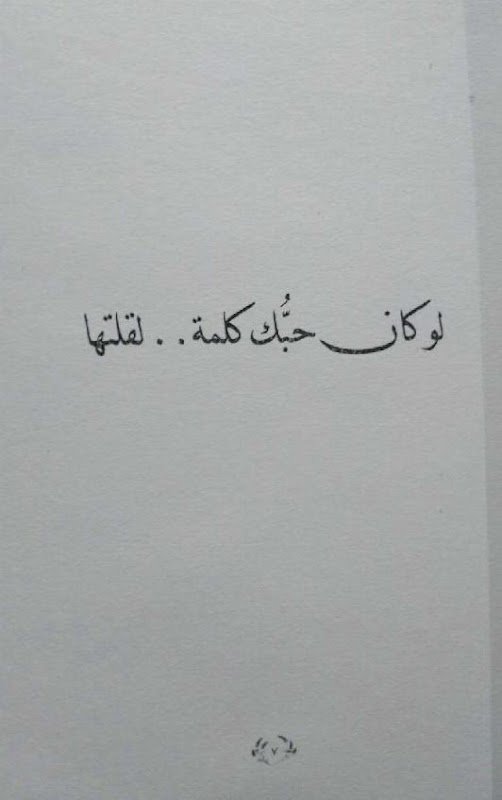 لو كان حبُّك كلمة . . لقلتها
٧